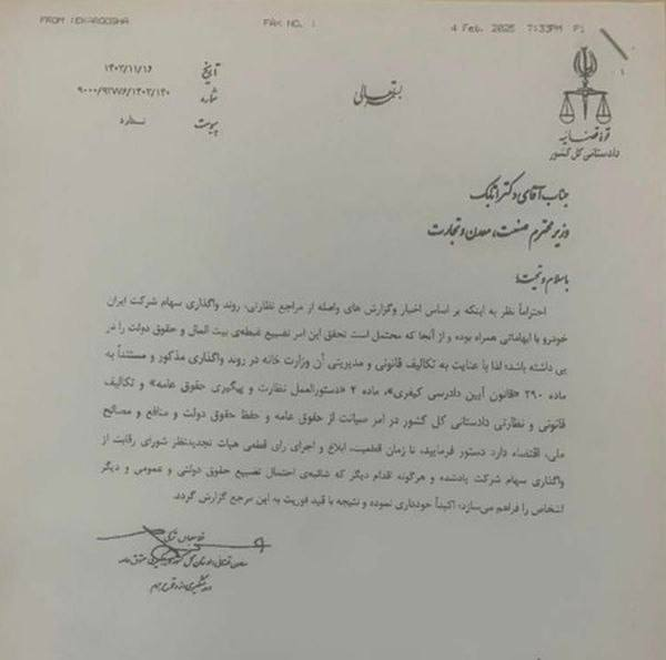 FROM : FAX NO. : 4 Feb. 2025 7:33PM P1
قوه قضاییه
دادستانی کل کشور
بسمه تعالی
تاریخ ۱۴۰۳/۱۱/۱۶
شماره ۹۰۰۰/۹۲۷۷۶/۱۴۰۳/۱۴۰
پیوست ندارد
جناب آقای دکتر اتابک
وزیر محترم صنعت، معدن و تجارت
با سلام و تحیت؛
احتراماً نظر به اینکه بر اساس اخبار وگزارش های واصله از مراجع نظارتی، روند واگذاری سهام شرکت ایران
خودرو با ابهاماتی همراه بوده و از آنجا که محتمل است تحقق این امر تضییع غبطه‌ی بیت المال و حقوق دولت را در
پی داشته باشد؛ لذا با عنایت به تکالیف قانونی و مدیریتی آن وزارت خانه در روند واگذاری مذکور و مستنداً به
ماده ۲۹۰ «قانون آیین دادرسی کیفری»، ماده ۴ «دستورالعمل نظارت و پیگیری حقوق عامه» و تکالیف
قانونی و نظارتی دادستانی کل کشور در امر صیانت از حقوق عامه و حفظ حقوق دولت و منافع و مصالح
ملی، اقتضاء دارد دستور فرمایید، تا زمان قطعیت، ابلاغ و اجرای رای قطعی هیات تجدیدنظر شورای رقابت از
واگذاری سهام شرکت یادشده و هرگونه اقدام دیگر که شائبه‌ی احتمال تضییع حقوق دولتی و عمومی و دیگر
اشخاص را فراهم می‌سازد؛ اکیداً خودداری نموده و نتیجه با قید فوریت به این مرجع گزارش گردد.
غلامعباس ترکی